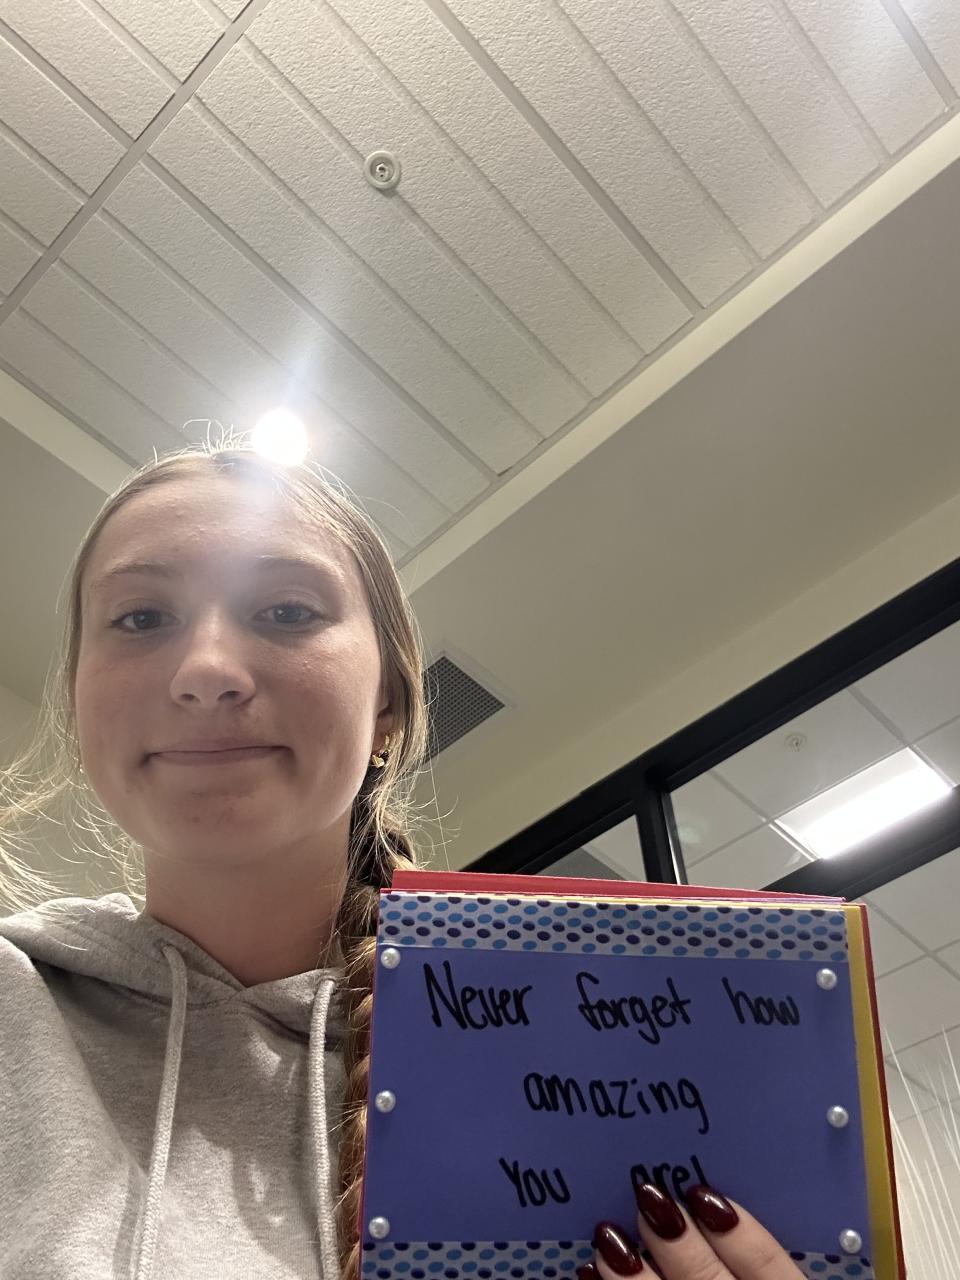 Never forget how
amazing
You are!